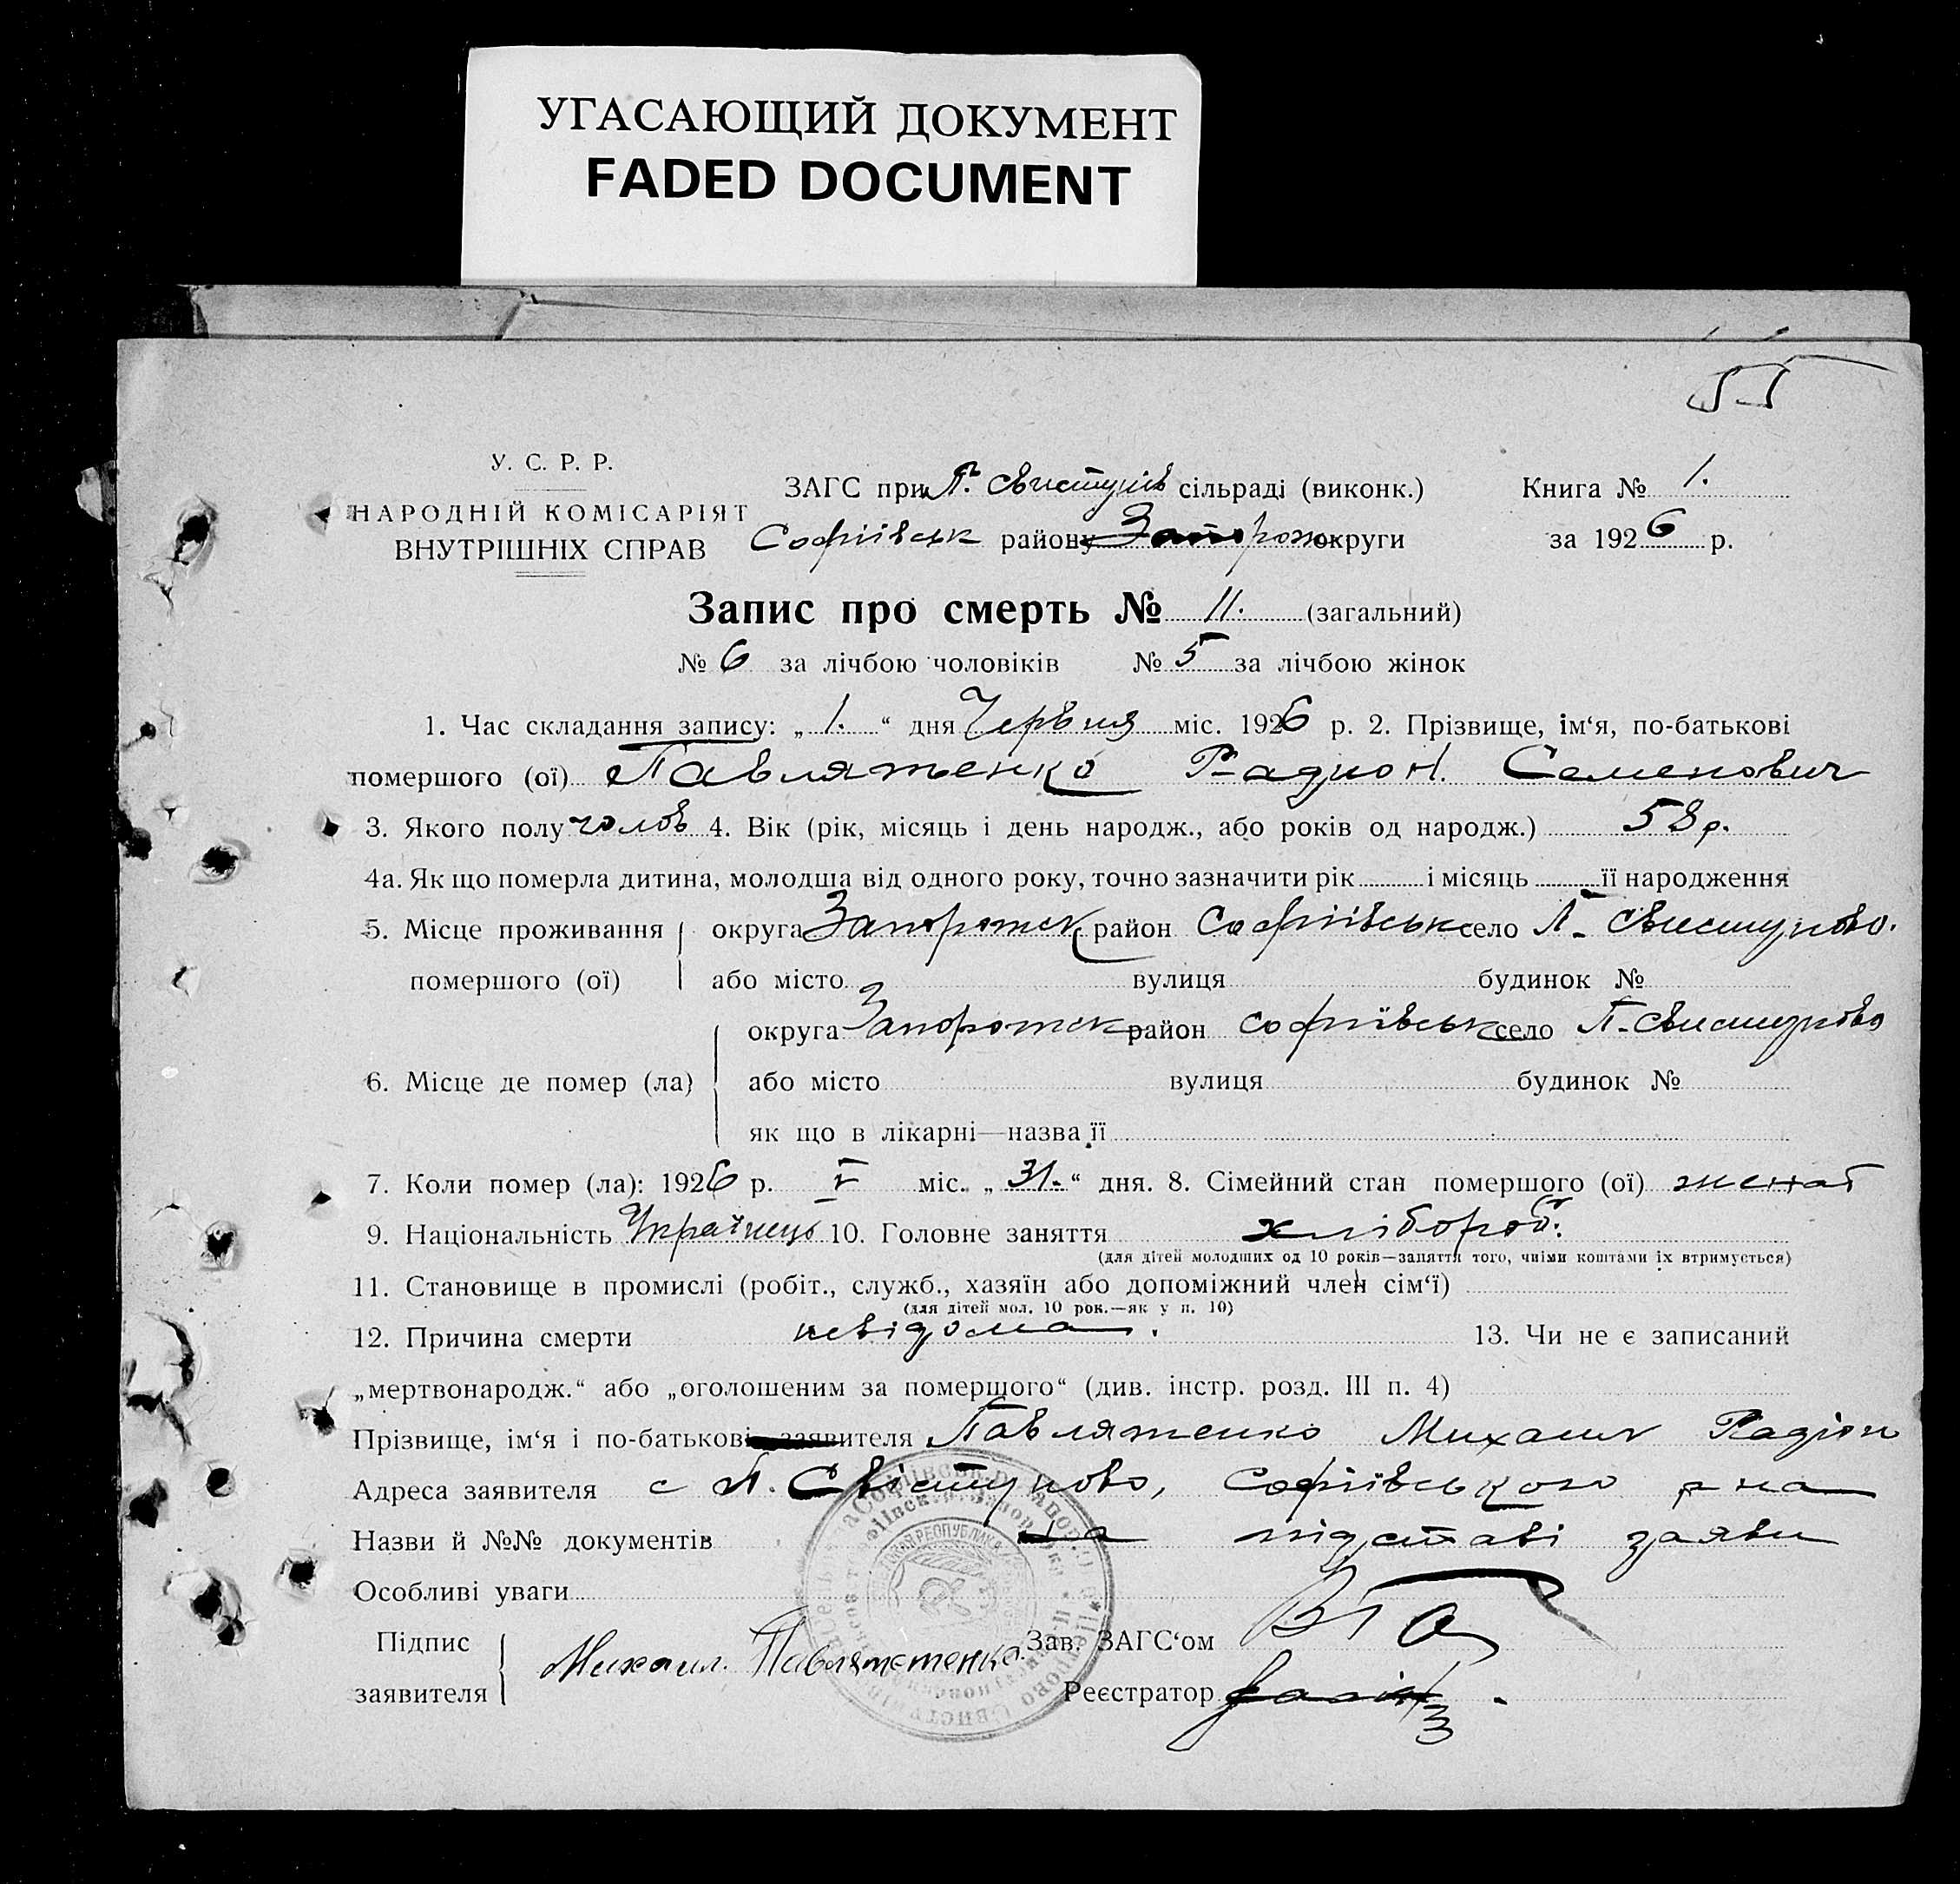 УГАСАЮЩИЙ ДОКУМЕНТ
FADED DOCUMENT
У. С. Р. Р.
НАРОДНІЙ КОМІСАРІЯТ
ВНУТРІШНІХ СПРАВ
ЗАГС при П. Свистунів сільраді (виконк.)
Софіівськ району Запорож округи
Книга № 1.
за 1926 р.
Запис про смерть № 11. (загальний)
№ 6 за лічбою чоловіків № 5 за лічбою жінок
1. Час складання запису: „ 1. “ дня Червня міс. 1926 р. 2. Прізвище, ім‘я, по-батькові
помершого (ої) Павлятенко Радион. Семенович
3. Якого полу чолов 4. Вік (рік, місяць і день народж., або років од народж.) 58 р.
4а. Як що померла дитина, молодша від одного року, точно зазначити рік і місяць її народження
5. Місце проживання помершого (ої) округа Запорожск район Софіівськ село П. Свистуново.
або місто вулиця будинок №
6. Місце де помер (ла) округа Запорожск район Софіївськ село П. Свистуново
або місто вулиця будинок №
як що в лікарні—назва її
7. Коли помер (ла): 1926 р. V міс. „ 31. “ дня. 8. Сімейний стан помершого (ої) женат
9. Національність Українець 10. Головне заняття хлібороб.
(для дітей молодших од 10 років—заняття того, чиїми коштами їх втримується)
11. Становище в промислі (робіт., служб., хазяїн або допоміжний член сім‘ї)
(для дітей мол. 10 рок.—як у п. 10)
12. Причина смерти невідома. 13. Чи не є записаний
„мертвонародж.“ або „оголошеним за помершого“ (див. інстр. розд. III п. 4)
Прізвище, ім‘я і по-батькові заявителя Павлятенко Михаил Радіон
Адреса заявителя с П. Свістуново, Софіївського р на
Назви й №№ документів на підставі заяви
Особливі уваги
Підпис заявителя Михаил.
Зав. ЗАГС‘ом
Реєстратор